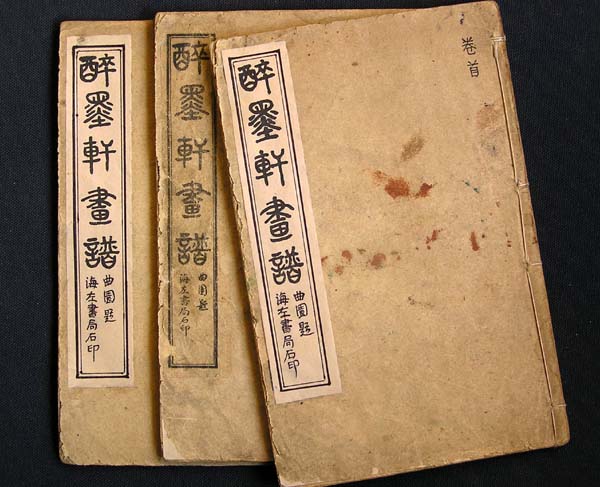 醉墨軒畫譜
曲園題
海左書局石印
醉墨軒畫譜
曲園題
海左書局石印
卷首
醉墨軒畫譜
曲園題
海左書局石印